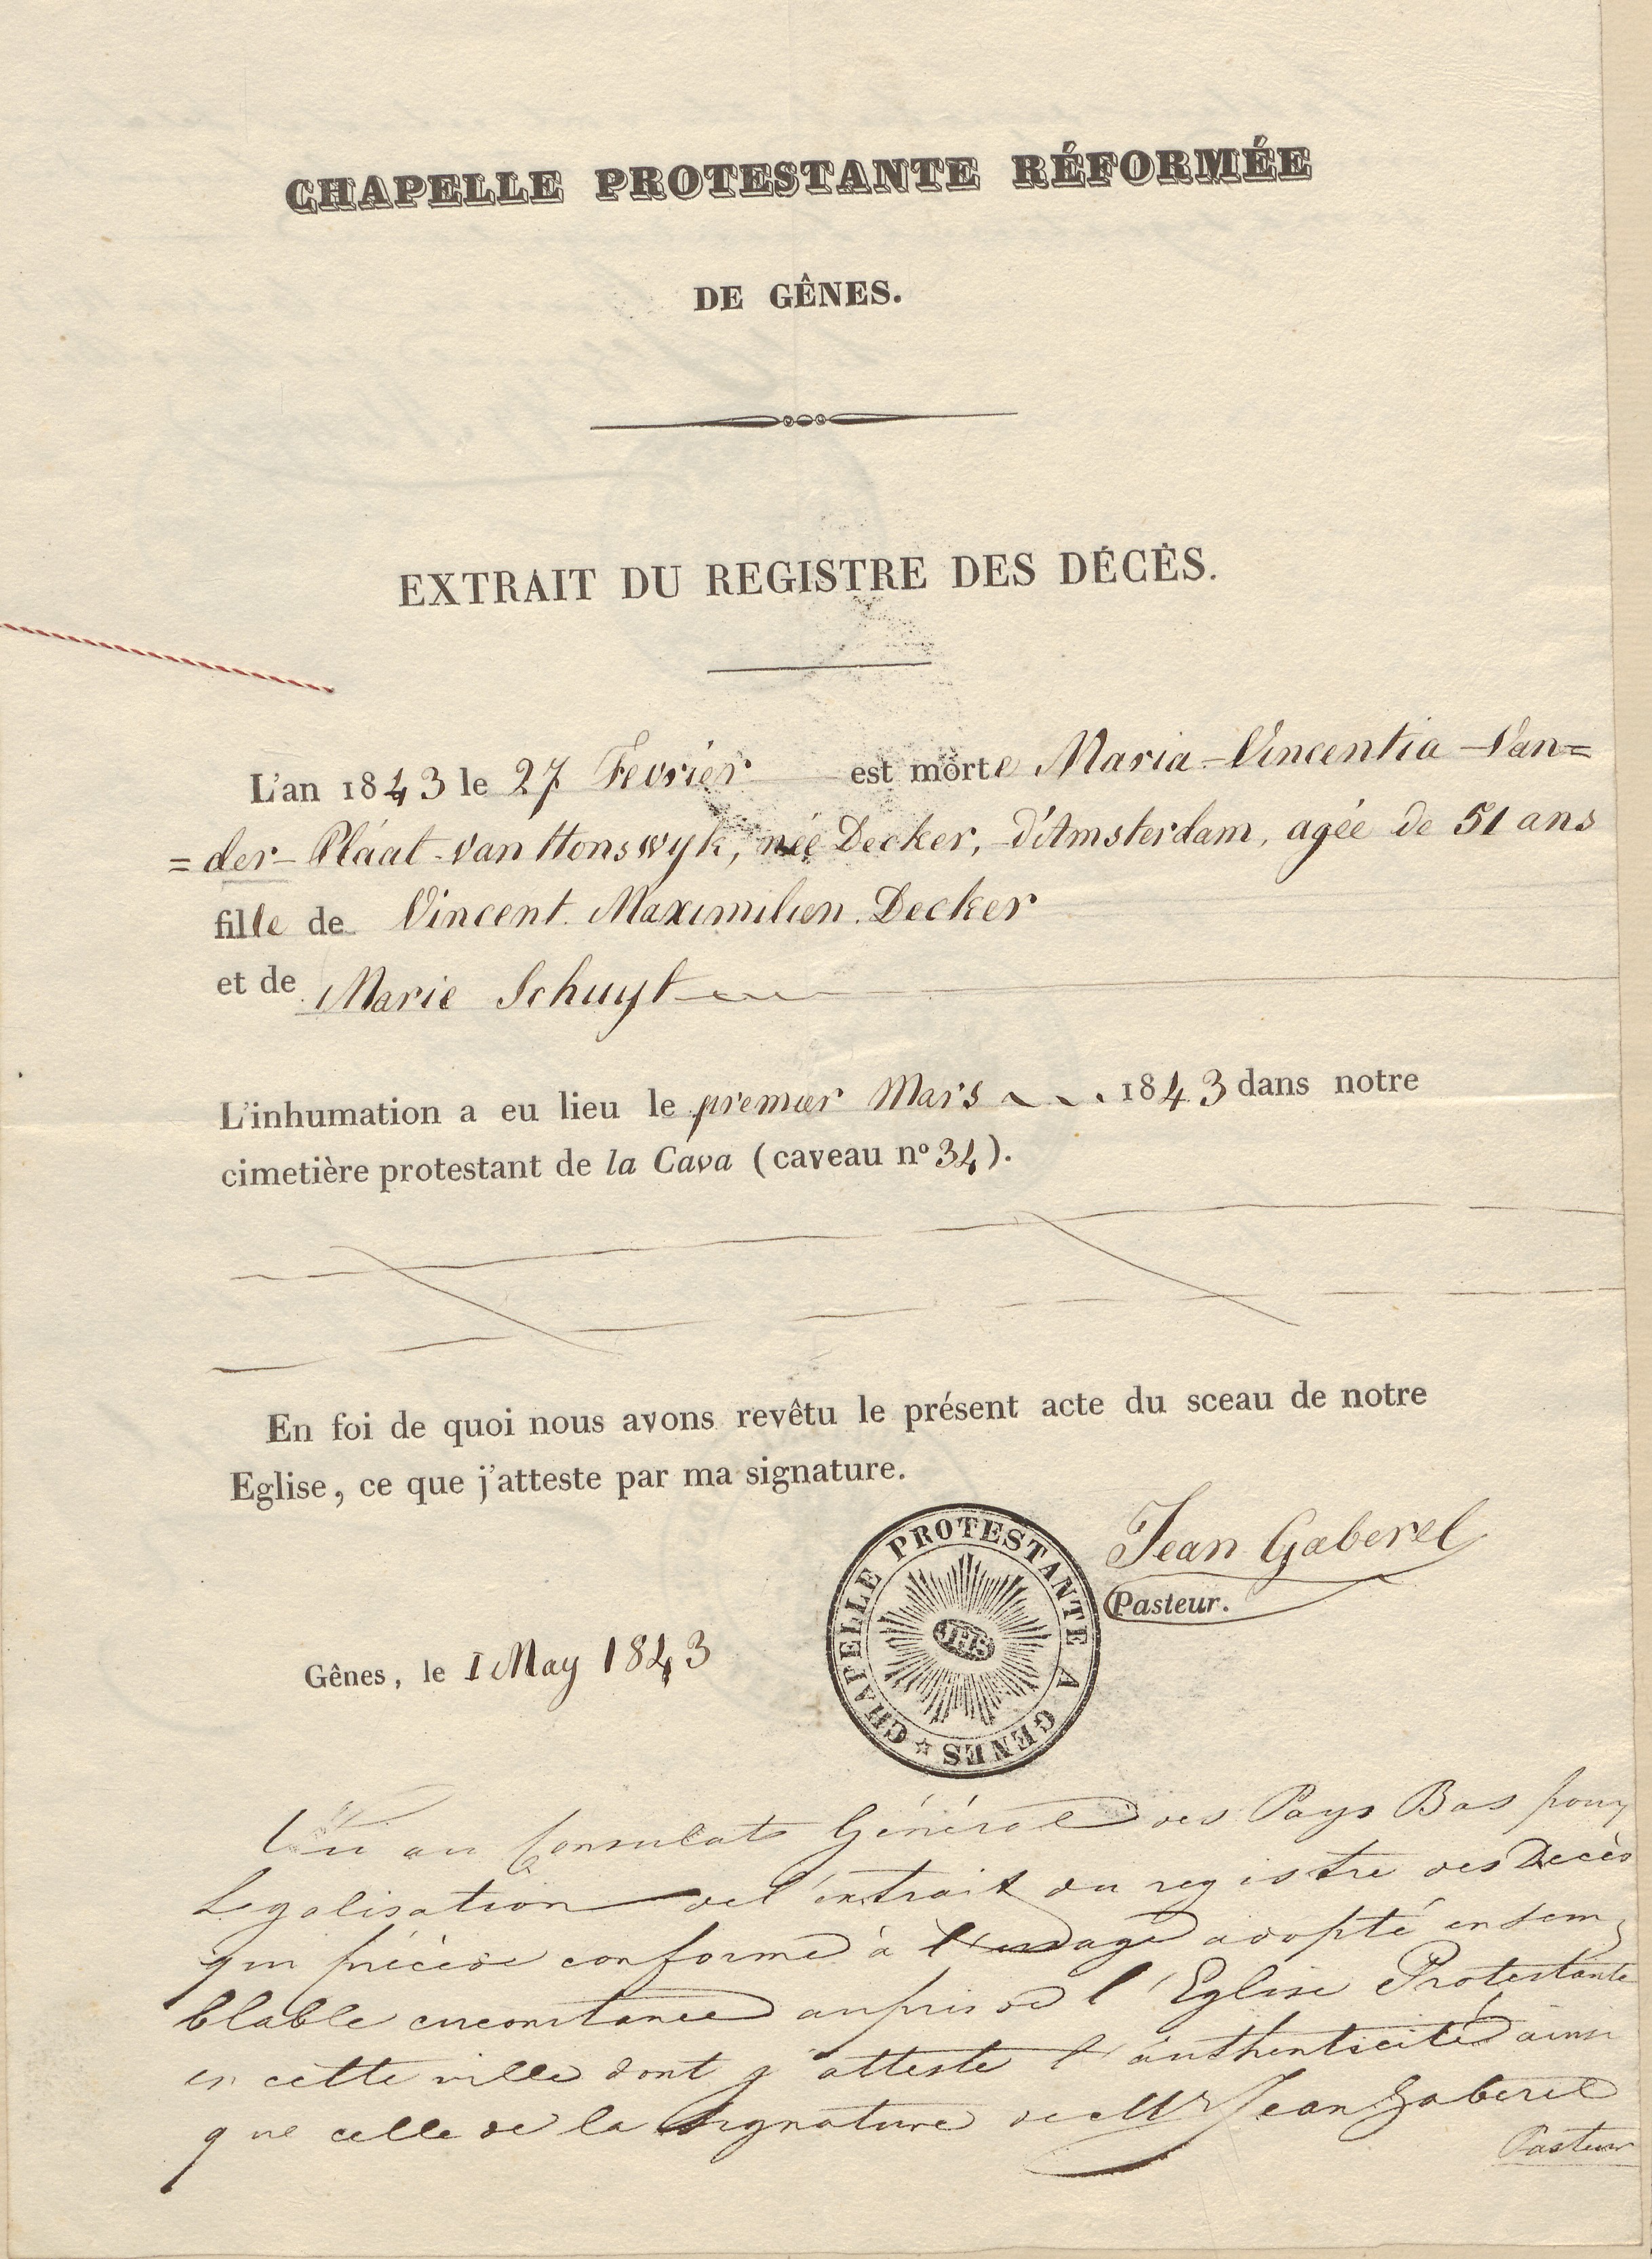 CHAPELLE PROTESTANTE RÉFORMÉE
DE GÊNES.
EXTRAIT DU REGISTRE DES DÉCÈS.
L'an 1843 le 27 Fevrier est morte Maria-Vincentia-Van=
=der-Pláat-van Honswyk, née Decker, d'Amsterdam, agée de 51 ans
fille de Vincent. Maximilien. Decker
et de Marie Schuyt
L'inhumation a eu lieu le premier Mars 1843 dans notre
cimetière protestant de la Cava (caveau nº 34).
En foi de quoi nous avons revêtu le présent acte du sceau de notre
Eglise, ce que j'atteste par ma signature.
Jean Gaberel
Pasteur.
CHAPELLE PROTESTANTE A GENES
JHS
Gênes, le 1 May 1843
Vu au Consulat Général des Pays Bas pour
Legalisation de l'extrait du registre des Decès
qui précède conforme à l'usage adopté en sem
blable circonstance auprès de l'Eglise Protestante
en cette ville dont j'atteste l'authenticité ainsi
que celle de la signature de Mr Jean Gaberel
Pasteur